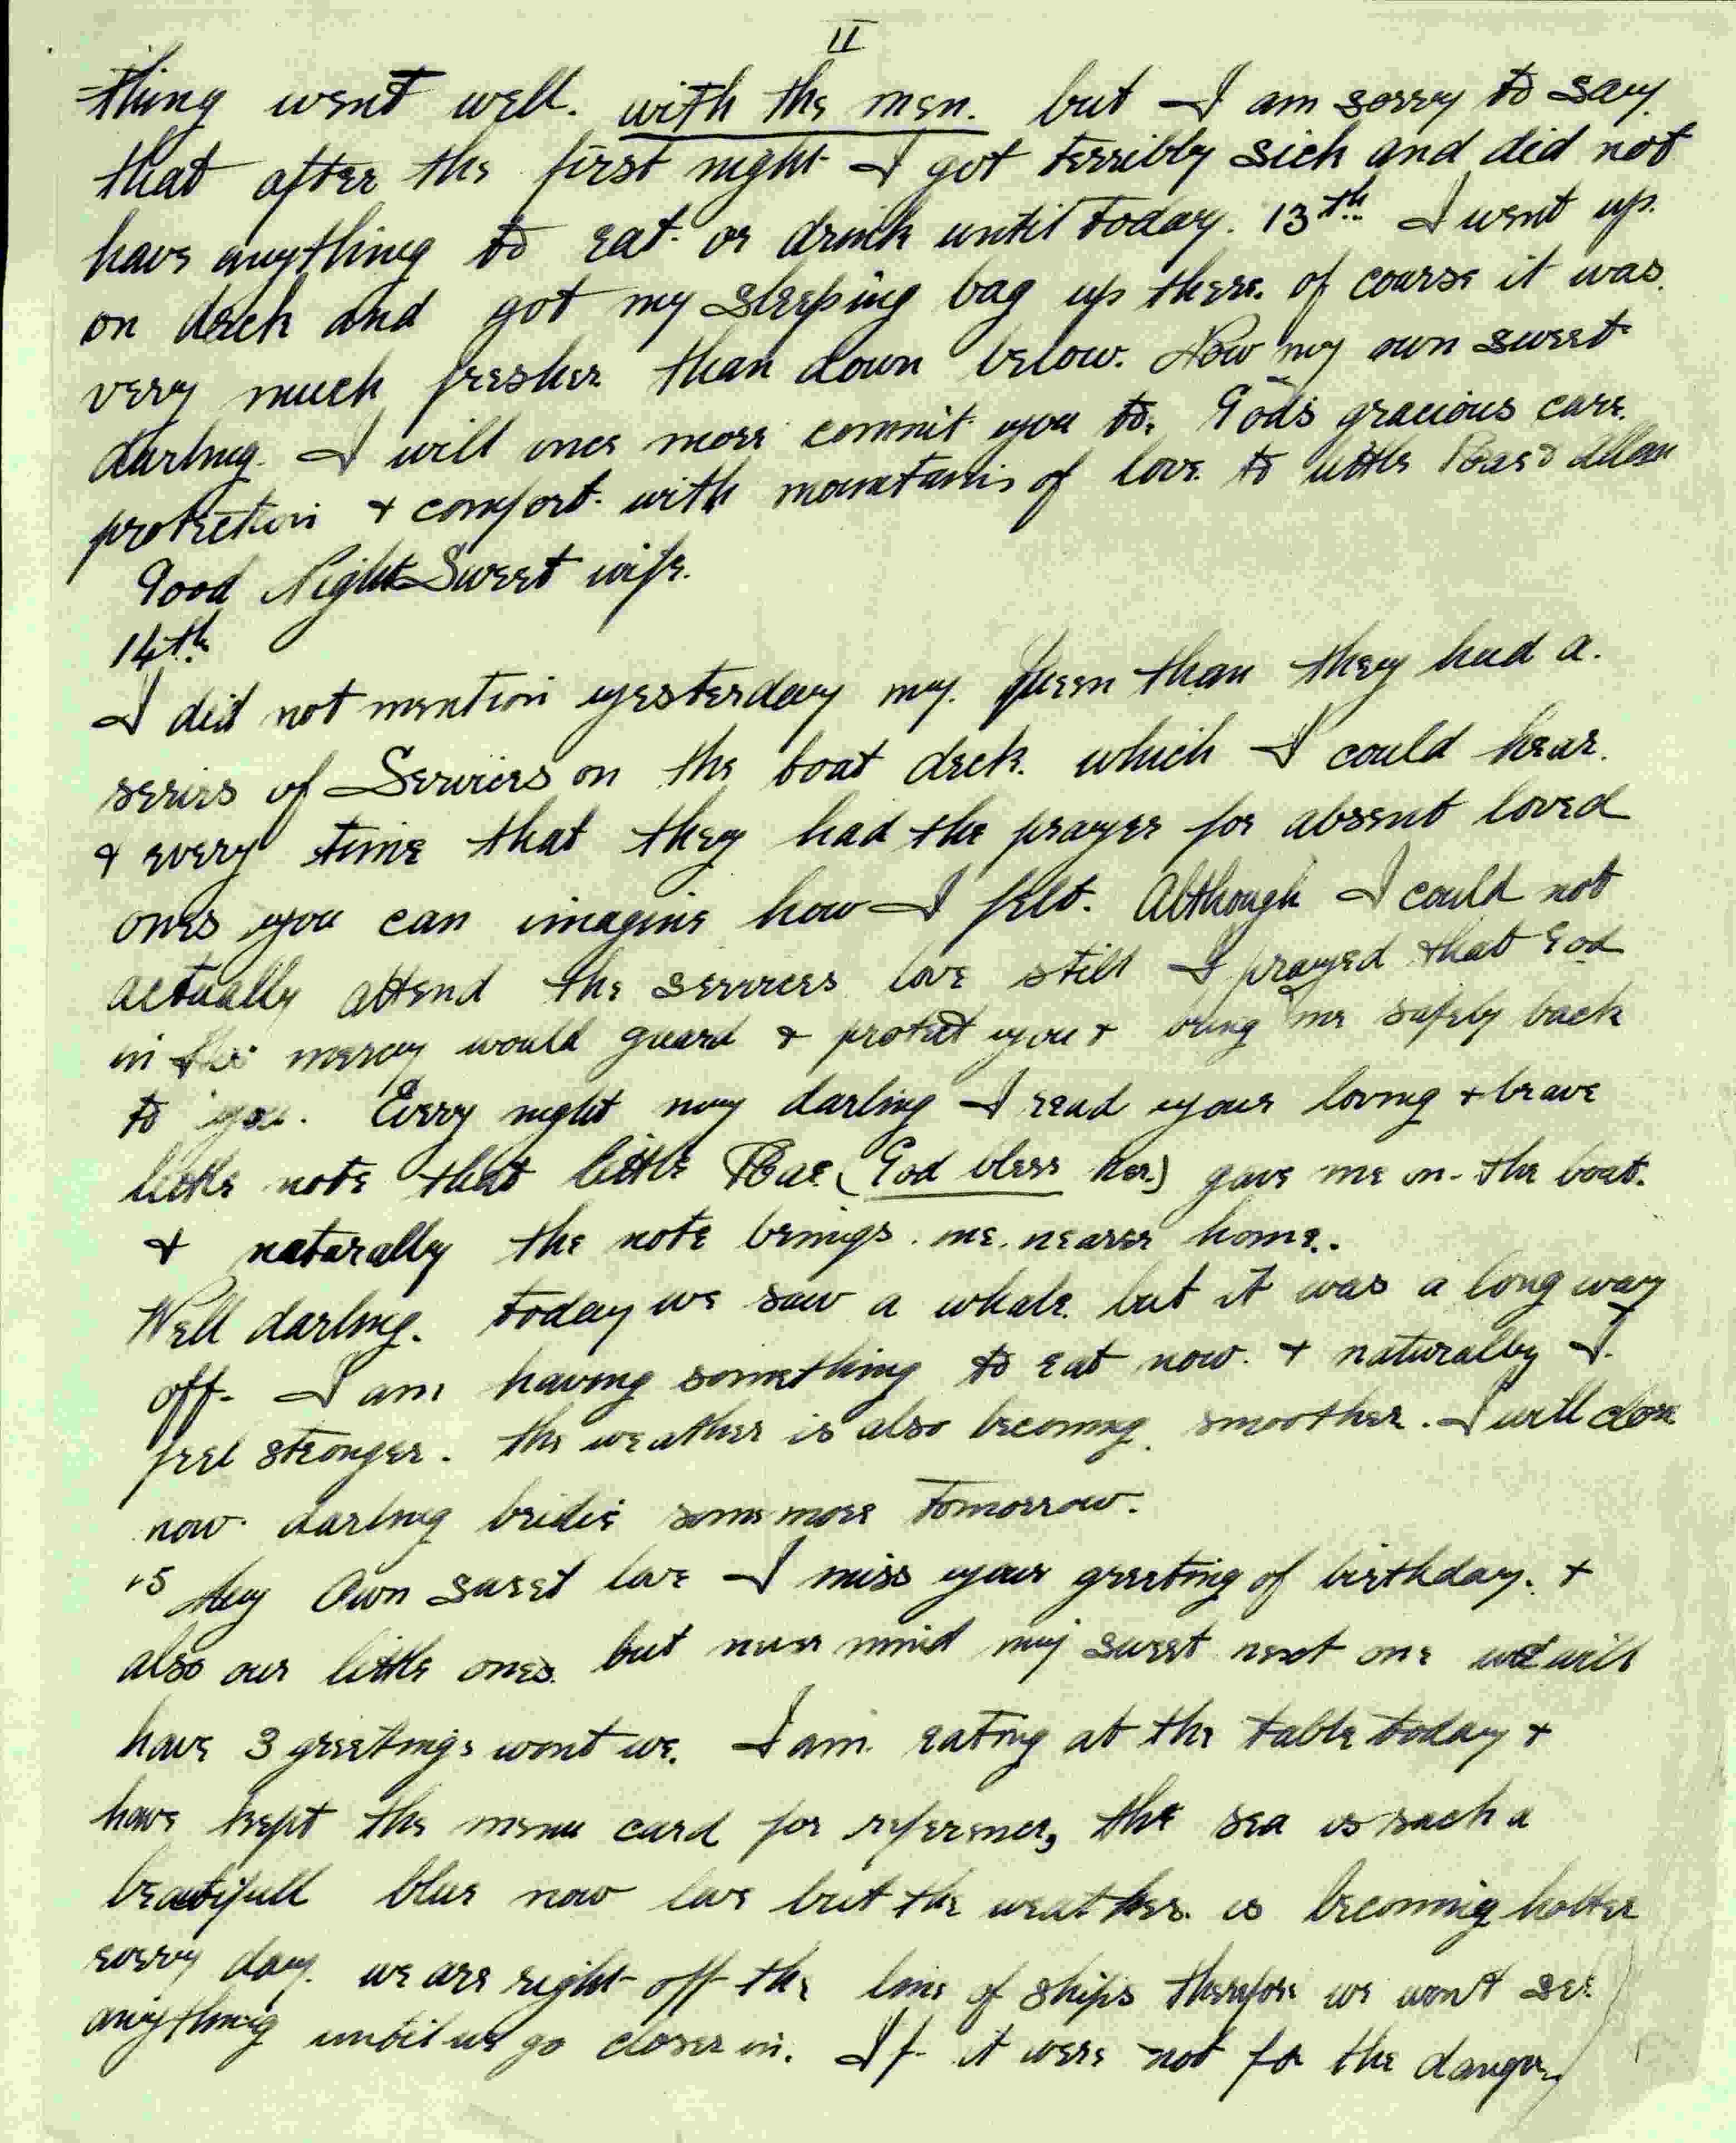 II
thing went well. with the men. but I am sorry to say.
that after the first night I got terribly sick and did not
have anything to eat. or drink until today. 13th. I went up.
on deck and got my sleeping bag up there. of coarse it was.
very much fresher than down below. Now my own sweet
darling. I will once more commit you to. Gods gracious care.
protection & comfort. with mountains of love. to little
Good Night Sweet wife.
14th
I did not mention yesterday my. Queen than they had a.
series of Services on the boat deck. which I could hear.
& every time that they had the prayer for absent loved
ones you can imagine how I felt. Although I could not
actually attend the services love still I prayed that God
in his mercy would guard & protect you & bring me safely back
to you. Every night my darling I read your loving & brave
little note that little (God bless her.) gave me on - the boat.
& naturally the note brings. me. nearer home..
Well darling. today we saw a whale. but it was a long way
off - I am having something to eat now. & naturally I.
feel stronger. the weather is also becoming. smoother. I will close
now. darling bridie some more tomorrow.
15 My Own sweet love I miss your greeting of birthday. &
also our little ones. but never mind my sweet next one we will
have 3 greetings wont we. I am. eating at the table today &
have kept the menu card for reference, the sea is such a
beautifull blue now love but the weather. is becoming hotter
every day. we are right off the line of ships therefore we won't see.
anything until we go closer in. If it were not for the danger,